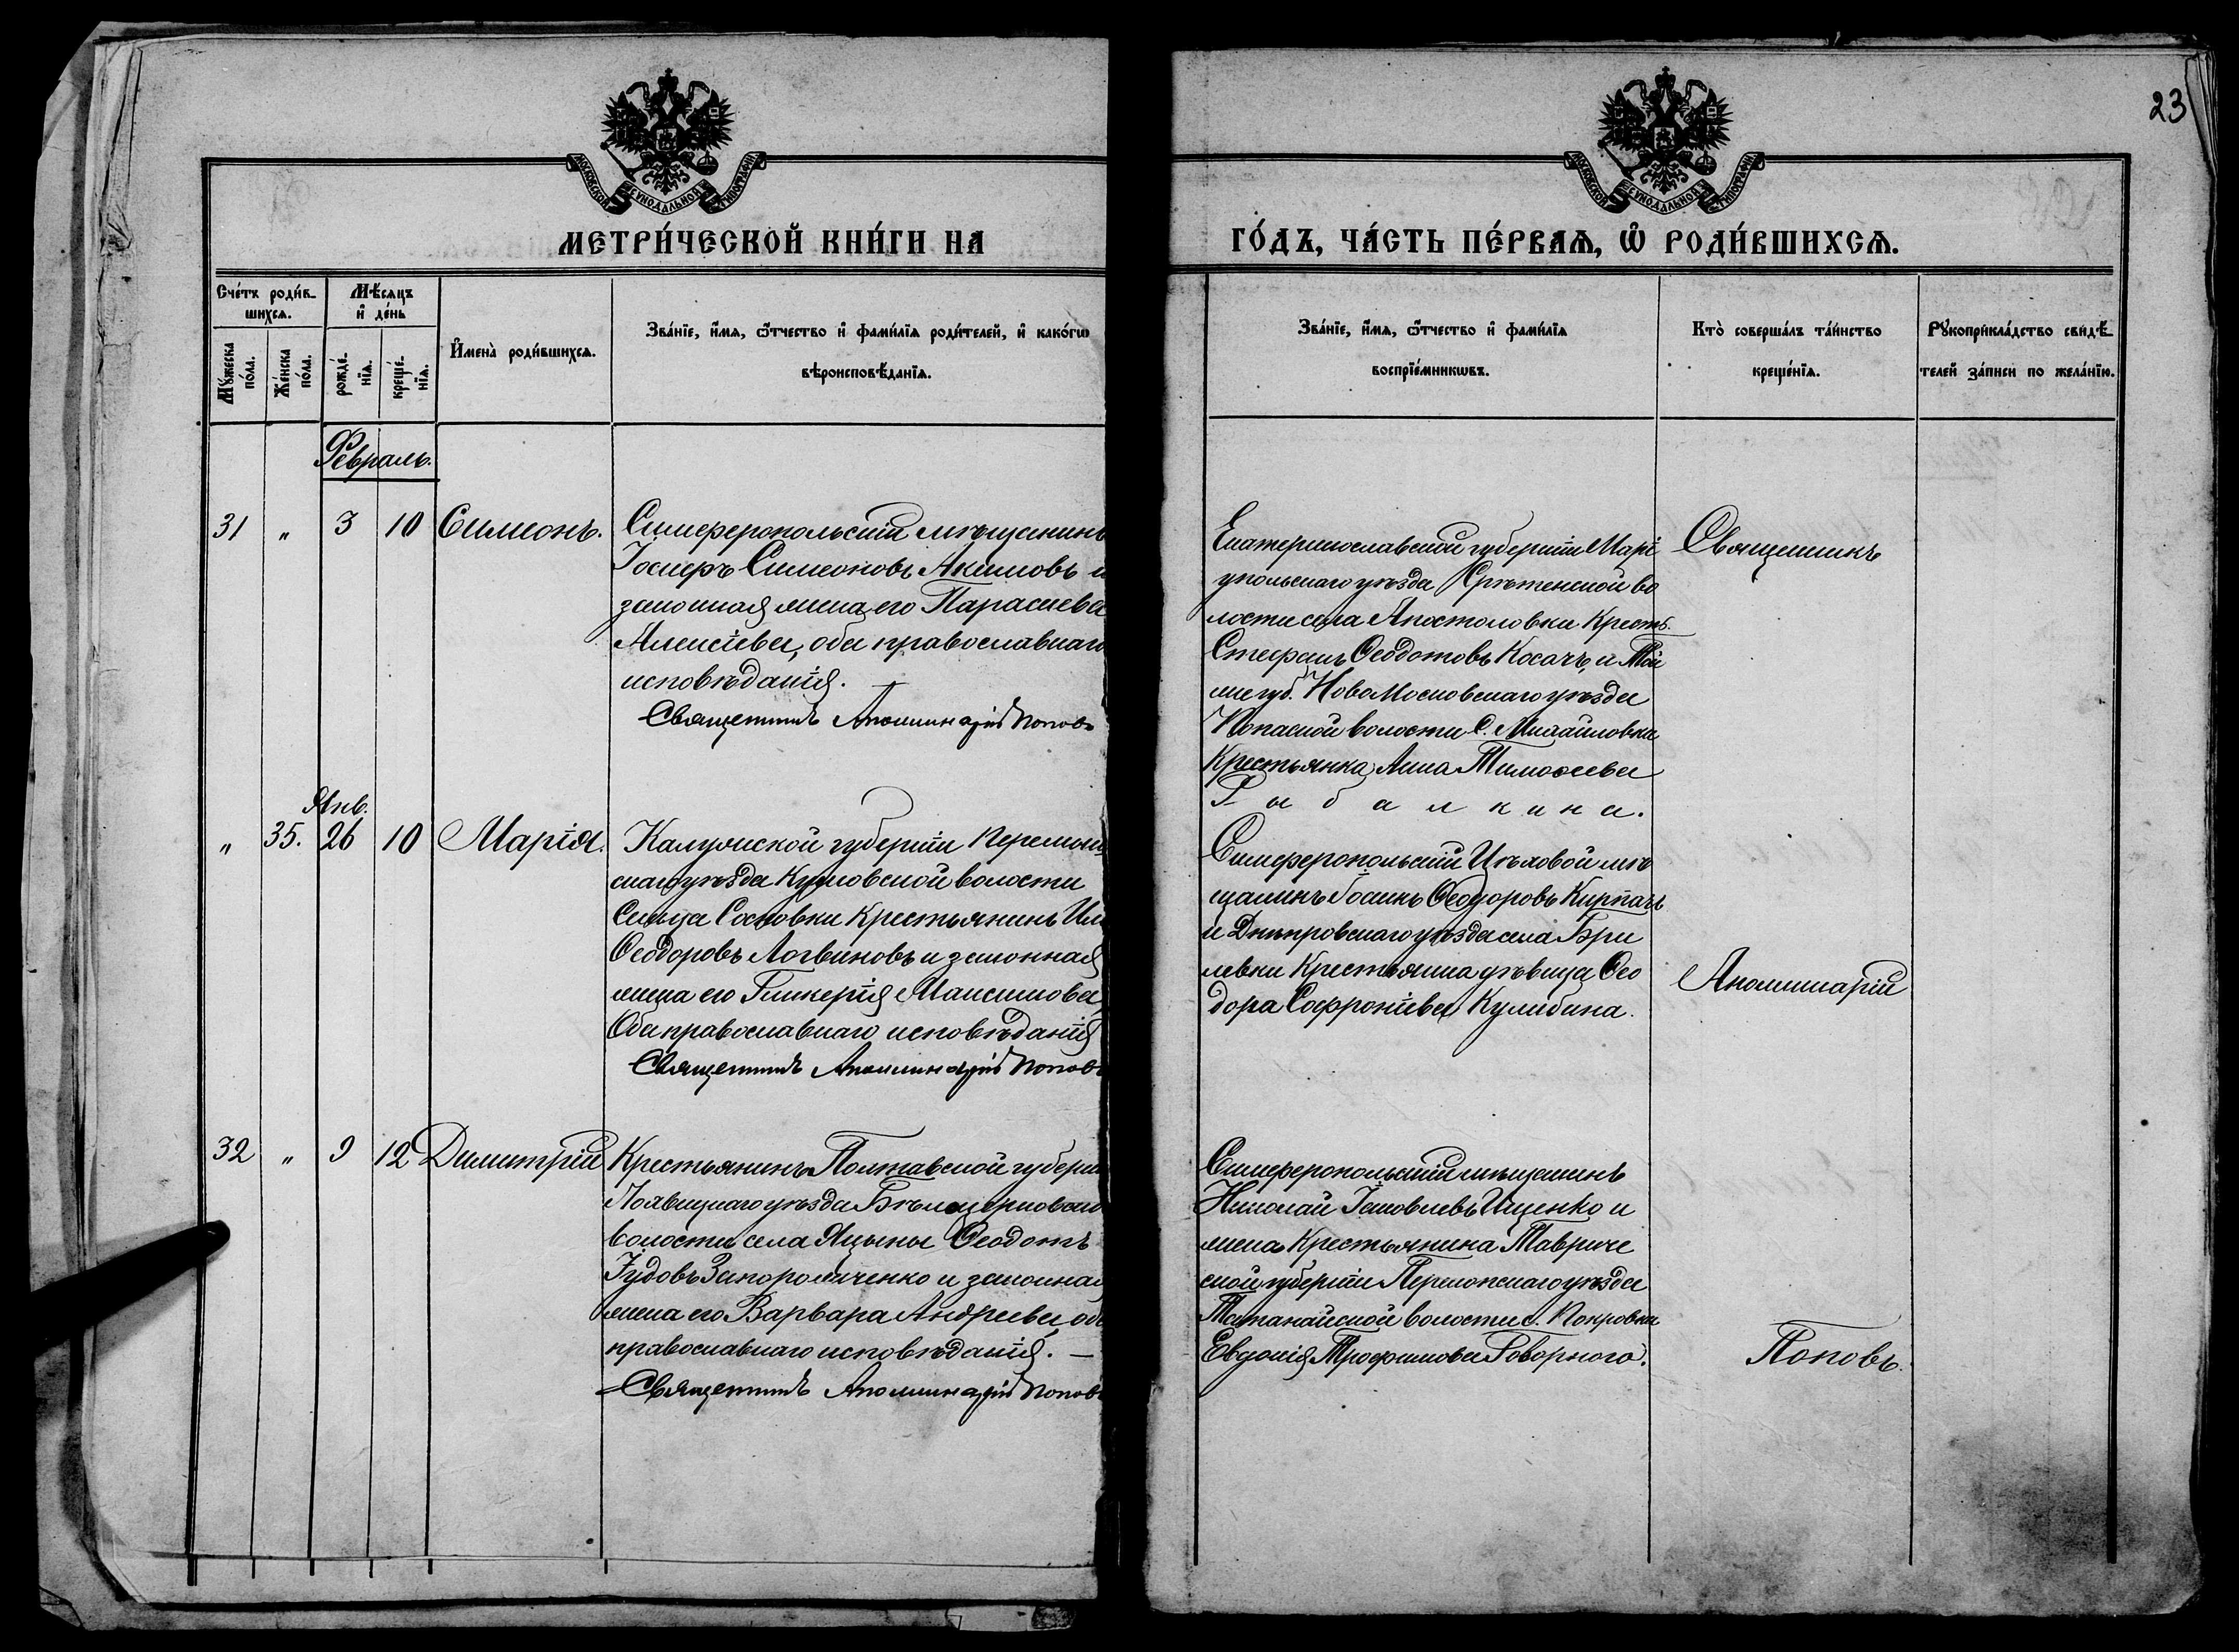 23
МОСКОВСКОЙ СѴНОДАЛЬНОЙ ТИПОГРАФІИ
МОСКОВСКОЙ СѴНОДАЛЬНОЙ ТИПОГРАФІИ
МЕТРИ́ЧЕСКОЙ КНИ́ГИ НА
ГО́ДЪ, ЧА́СТЬ ПЕ́РВАѦ, Ѡ҆ РОДИ́ВШИХСѦ.
Сче́тъ роди́в-
шихсѧ.
Мѣ́сяцъ
и҆ де́нь
Мꙋ́жеска
по́ла.
Же́нска
по́ла.
рожде́-
нїѧ.
креще́-
нїѧ.
И҆мена̀ роди́вшихсѧ.
Зва́нїе, и҆́мѧ, ѻ҆́тчество и҆ фами́лїѧ роди́телей, и҆ како́гѡ
вѣроисповѣ́данїѧ.
Зва́нїе, и҆́мѧ, ѻ҆́тчество и҆ фами́лїѧ
воспрїе́мникѡвъ.
Кто̀ соверша́лъ та́инство
креще́нїѧ.
Рꙋкоприкла́дство свидѣ́-
телей за́писи по жела́нїю.
Февраль.
31 " 3 10 Симеонъ.
Симферопольскій мѣщанинъ
Іосифъ Симеоновъ Акимовъ и
законная жена его Параскева
Алексіева, оба православнаго
исповѣданія.
Священникъ Аполлинарій Поповъ
Екатеринославской губерніи Марі
упольскаго уѣзда Срѣтенской во
лости села Апостоловки Крестъ.
Стефанъ Ѳеодотовъ Косачъ, и Той
же губ. НовоМосковскаго уѣзда
Попасной волости С. Михайловки
Крестьянка Анна Тимоѳеева
Рыбалкина.
Священникъ
Янв.
" 35. 26 10 Марія.
Калужской губерніи Перемыш
скаго уѣзда Кумовской волости
Сельца Сосновки Крестьянинъ Ил
Ѳеодоровъ Логвиновъ и законная
жена его Гликерія Максимова,
Оба православнаго исповѣданія
Священникъ Аполлинарій Поповъ
Симферопольскій Цѣховой мѣ
щанинъ Ѳеодоровъ Кирпачъ
и Днѣпровскаго уѣзда села Бри
левки Крестьянка дѣвица Ѳео
дора Софроніева Кулибина.
Аполлинарій
32 " 9 12 Димитрій
Крестьянинъ Полтавской губерніи
Лохвицкаго уѣзда Бѣлоцерковской
волости села Яцыны Ѳеодотъ
Іудовъ Запорожченко и законная
жена его Варвара Андреева, оба
православнаго исповѣданія. —
Священникъ Аполлинарій Поповъ
Симферопольскій мѣщанинъ
Николай Іаковлевъ Ищенко и
жена Крестьянина Тавриче
ской губерніи Перекопскаго уѣзда
волости с. Покровки
Евдокія Трофимова Говорного.
Поповъ.